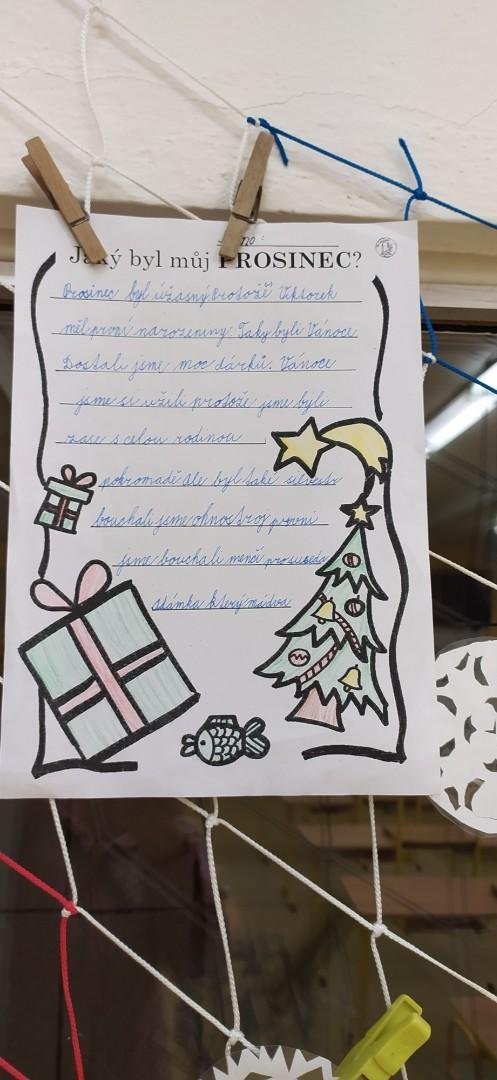 Jaký byl můj PROSINEC?
Prosinec byl úžasný Protožě Viktorek
měl první narozeniny. Taky byli Vánoce
Dostali jsme moc dárků. Vánoce
jsme si užili protože jsme býli
zase s celou rodinou
pohromadě ale byl také silvestr
bouchali jsme ohnostroj první
jsme bouchali menčí pro suseda
Adámka který má dva